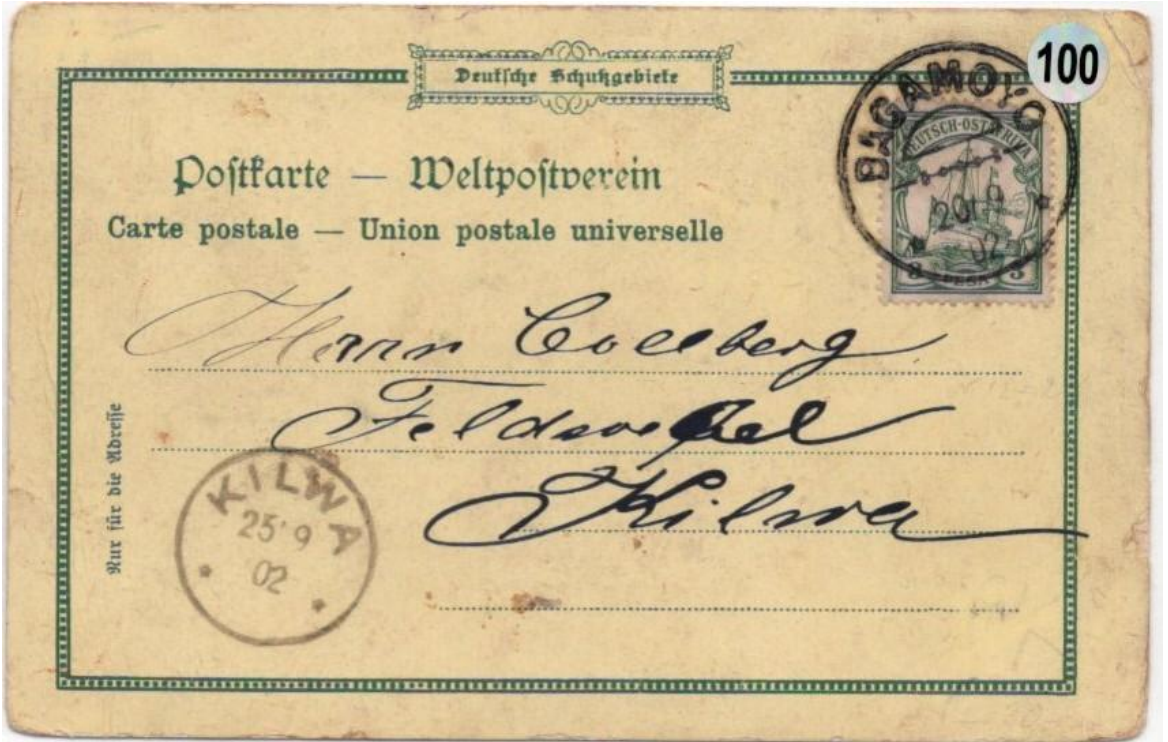 100
Deutsche Schutzgebiete
BAGAMOYO
20/9
02
DEUTSCH-OSTAFRIKA
3 PESA 3
Postkarte — Weltpostverein
Carte postale — Union postale universelle
Herrn Collberg
Feldwebel
Kilwa
Nur für die Adresse
KILWA
25/9
02